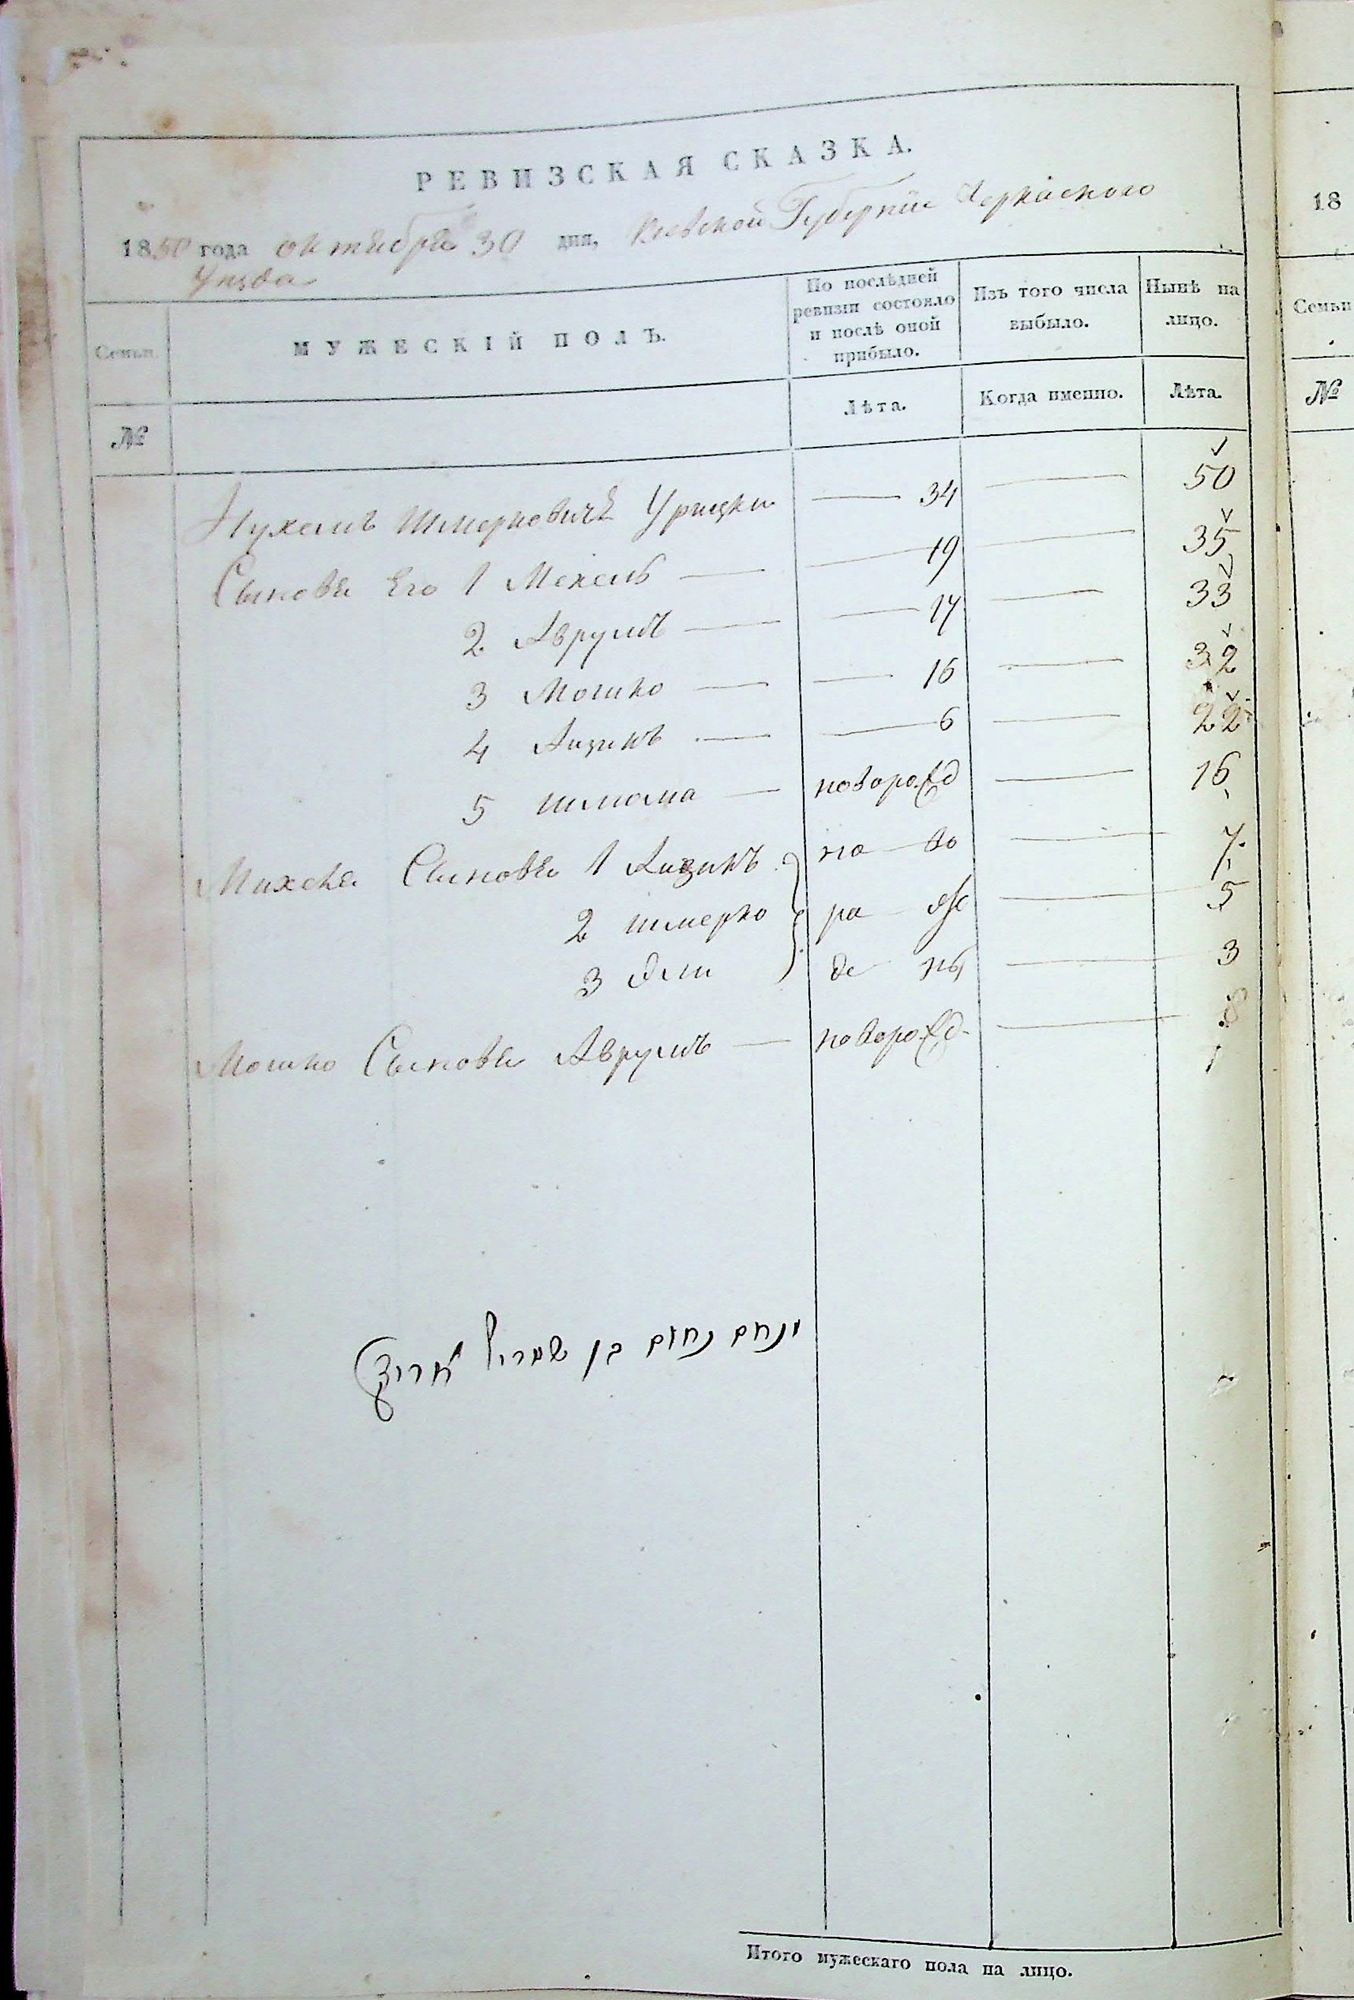 РЕВИЗСКАЯ СКАЗКА.
1850 года октября 30 дня, Киевской Губернии Черкаского
Уезда
Семьи.
МУЖЕСКІЙ ПОЛЪ.
По послѣдней ревизіи состояло и послѣ оной прибыло.
Изъ того числа выбыло.
Нынѣ на лицо.
№
Лѣта.
Когда именно.
Лѣта.
Нухемъ Шмеркович Урицки — 34 — 50
Сыновя Его 1 Мехель — 19 — 35
2 Аврумъ — 17 — 33
3 Мошко — 16 — 32
4 Аизикъ — 6 — 22
5 Шлиома — новорожд — 16
Сыновя 1 Аизикъ на во — 7
2 Шмерко ра — 5
3 Эли де — 3
Мошко Сыновя Аврумъ — новорожд — 8
1
נחום בן
Итого мужескаго пола на лицо.
18
Семьи
№